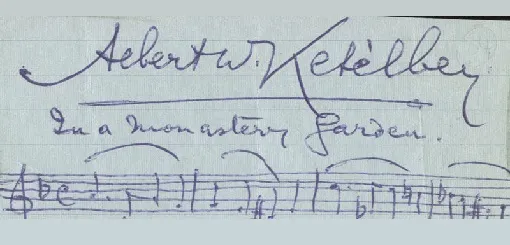 Albert W. Ketèlbey
In a monastery Garden.